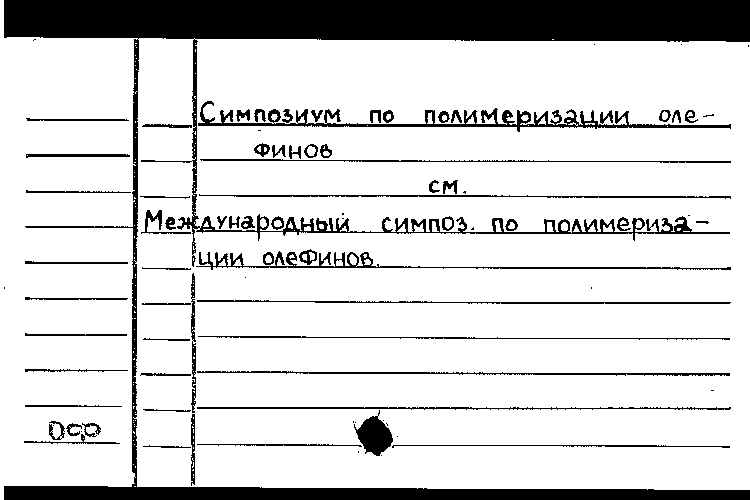 Симпозиум по полимеризации оле-
финов
см.
Международный симпоз. по полимериза-
ции олефинов.